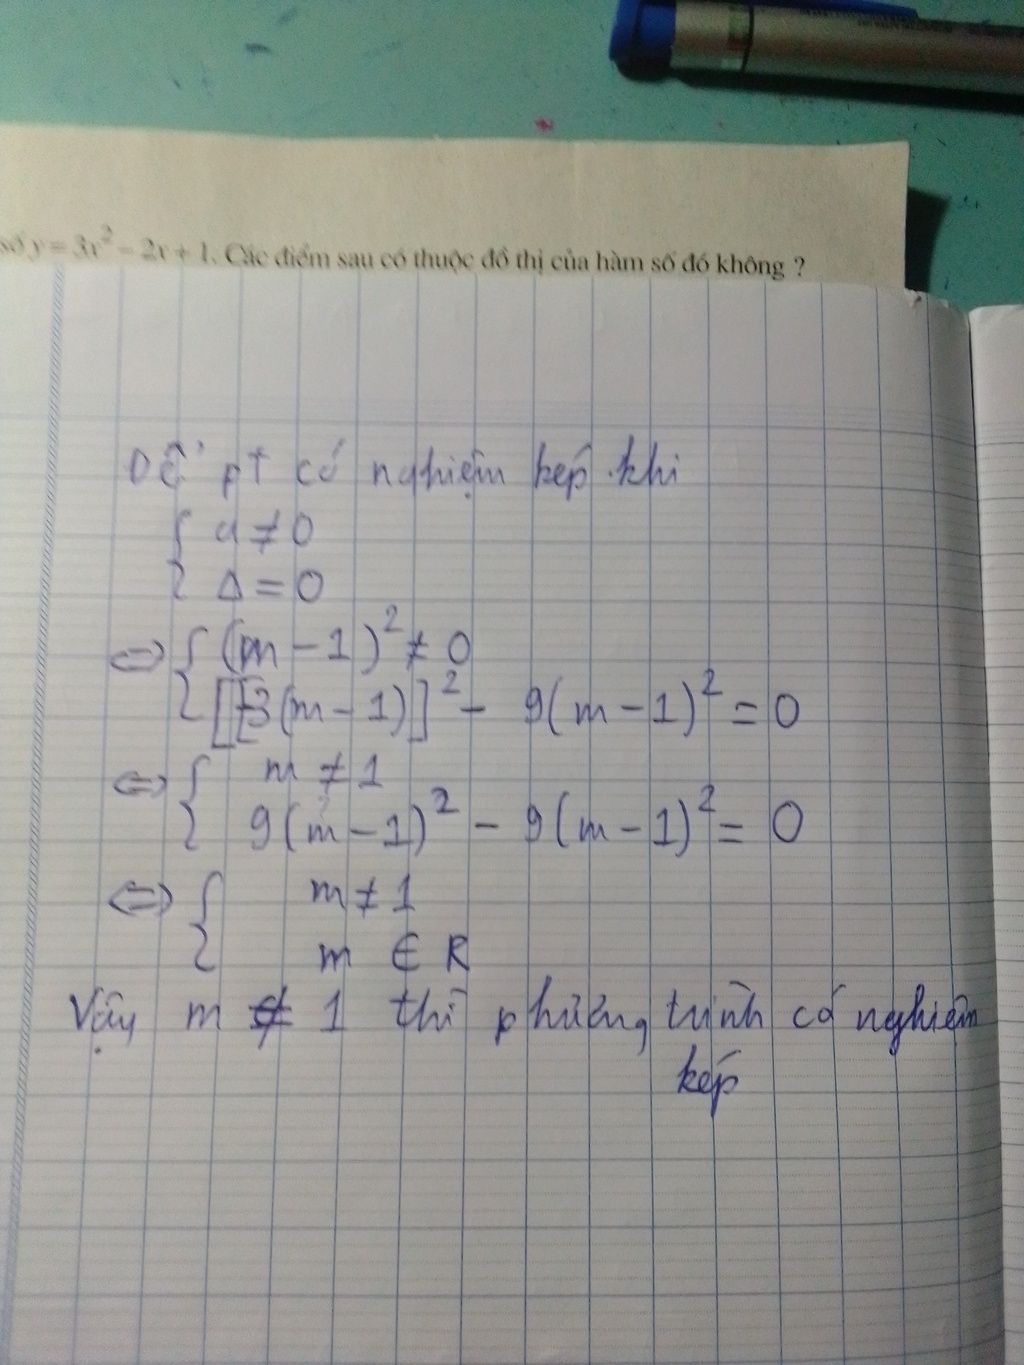 số y = 3x² − 2x + 1. Các điểm sau có thuộc đồ thị của hàm số đó không ?
Để pt có nghiệm kép khi
{ a ≠ 0
{ Δ = 0
⇔ { (m − 1)² ≠ 0
{ [[-3(m − 1)]² − 9(m − 1)² = 0
⇔ { m ≠ 1
{ 9(m − 1)² − 9(m − 1)² = 0
⇔ { m ≠ 1
{ m ∈ R
Vậy m ≠ 1 thì phương trình có nghiệm
kép